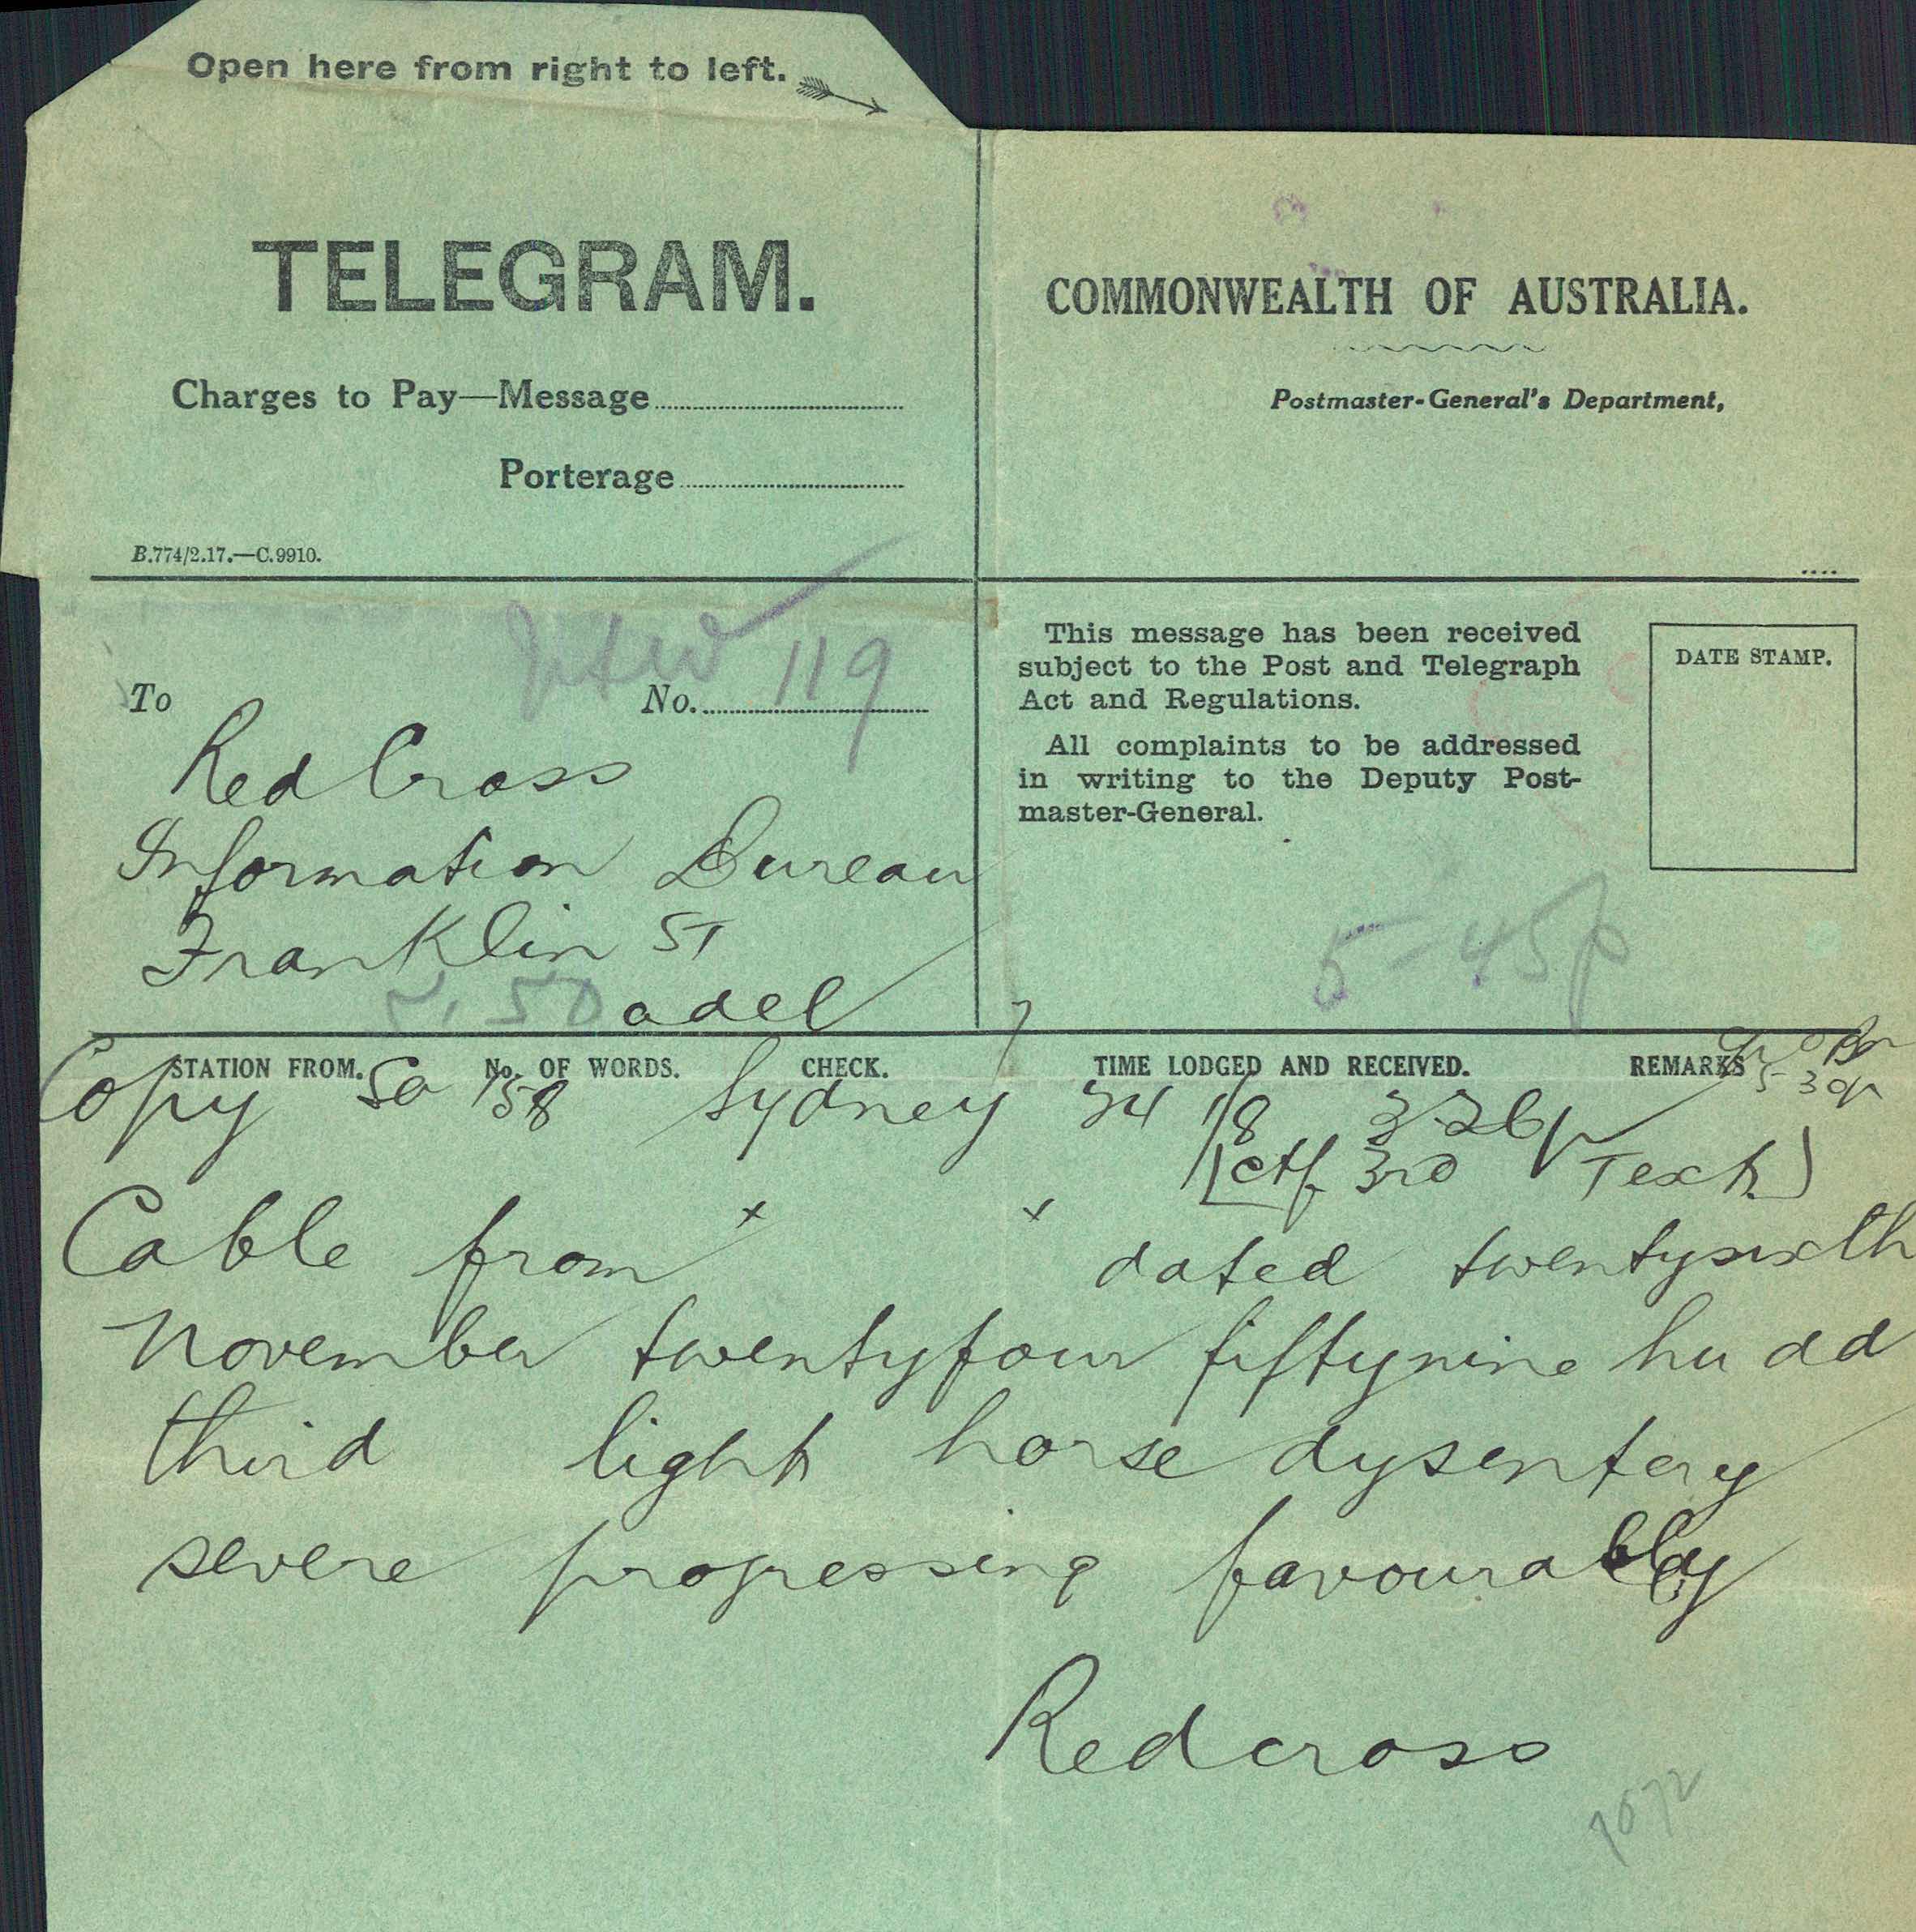 Open here from right to left.
TELEGRAM.
Charges to Pay—Message
Porterage
B.774/2.17.—C.9910.
COMMONWEALTH OF AUSTRALIA.
Postmaster-General's Department,
To
No. 119
Red Cross
Information Bureau
Franklin St
5.50 adel
This message has been received
subject to the Post and Telegraph
Act and Regulations.
All complaints to be addressed
in writing to the Deputy Post-
master-General.
DATE STAMP.
5-45p
STATION FROM. No. OF WORDS. CHECK. TIME LODGED AND RECEIVED. REMARKS
Copy So 158 Sydney 34 1/8 3-26p
[ctf 3rd Text)
Cable from x x dated twentysixth
November twentyfour fiftynine hudd
third light horse dysentery
severe progressing favourably
Redcross
1672